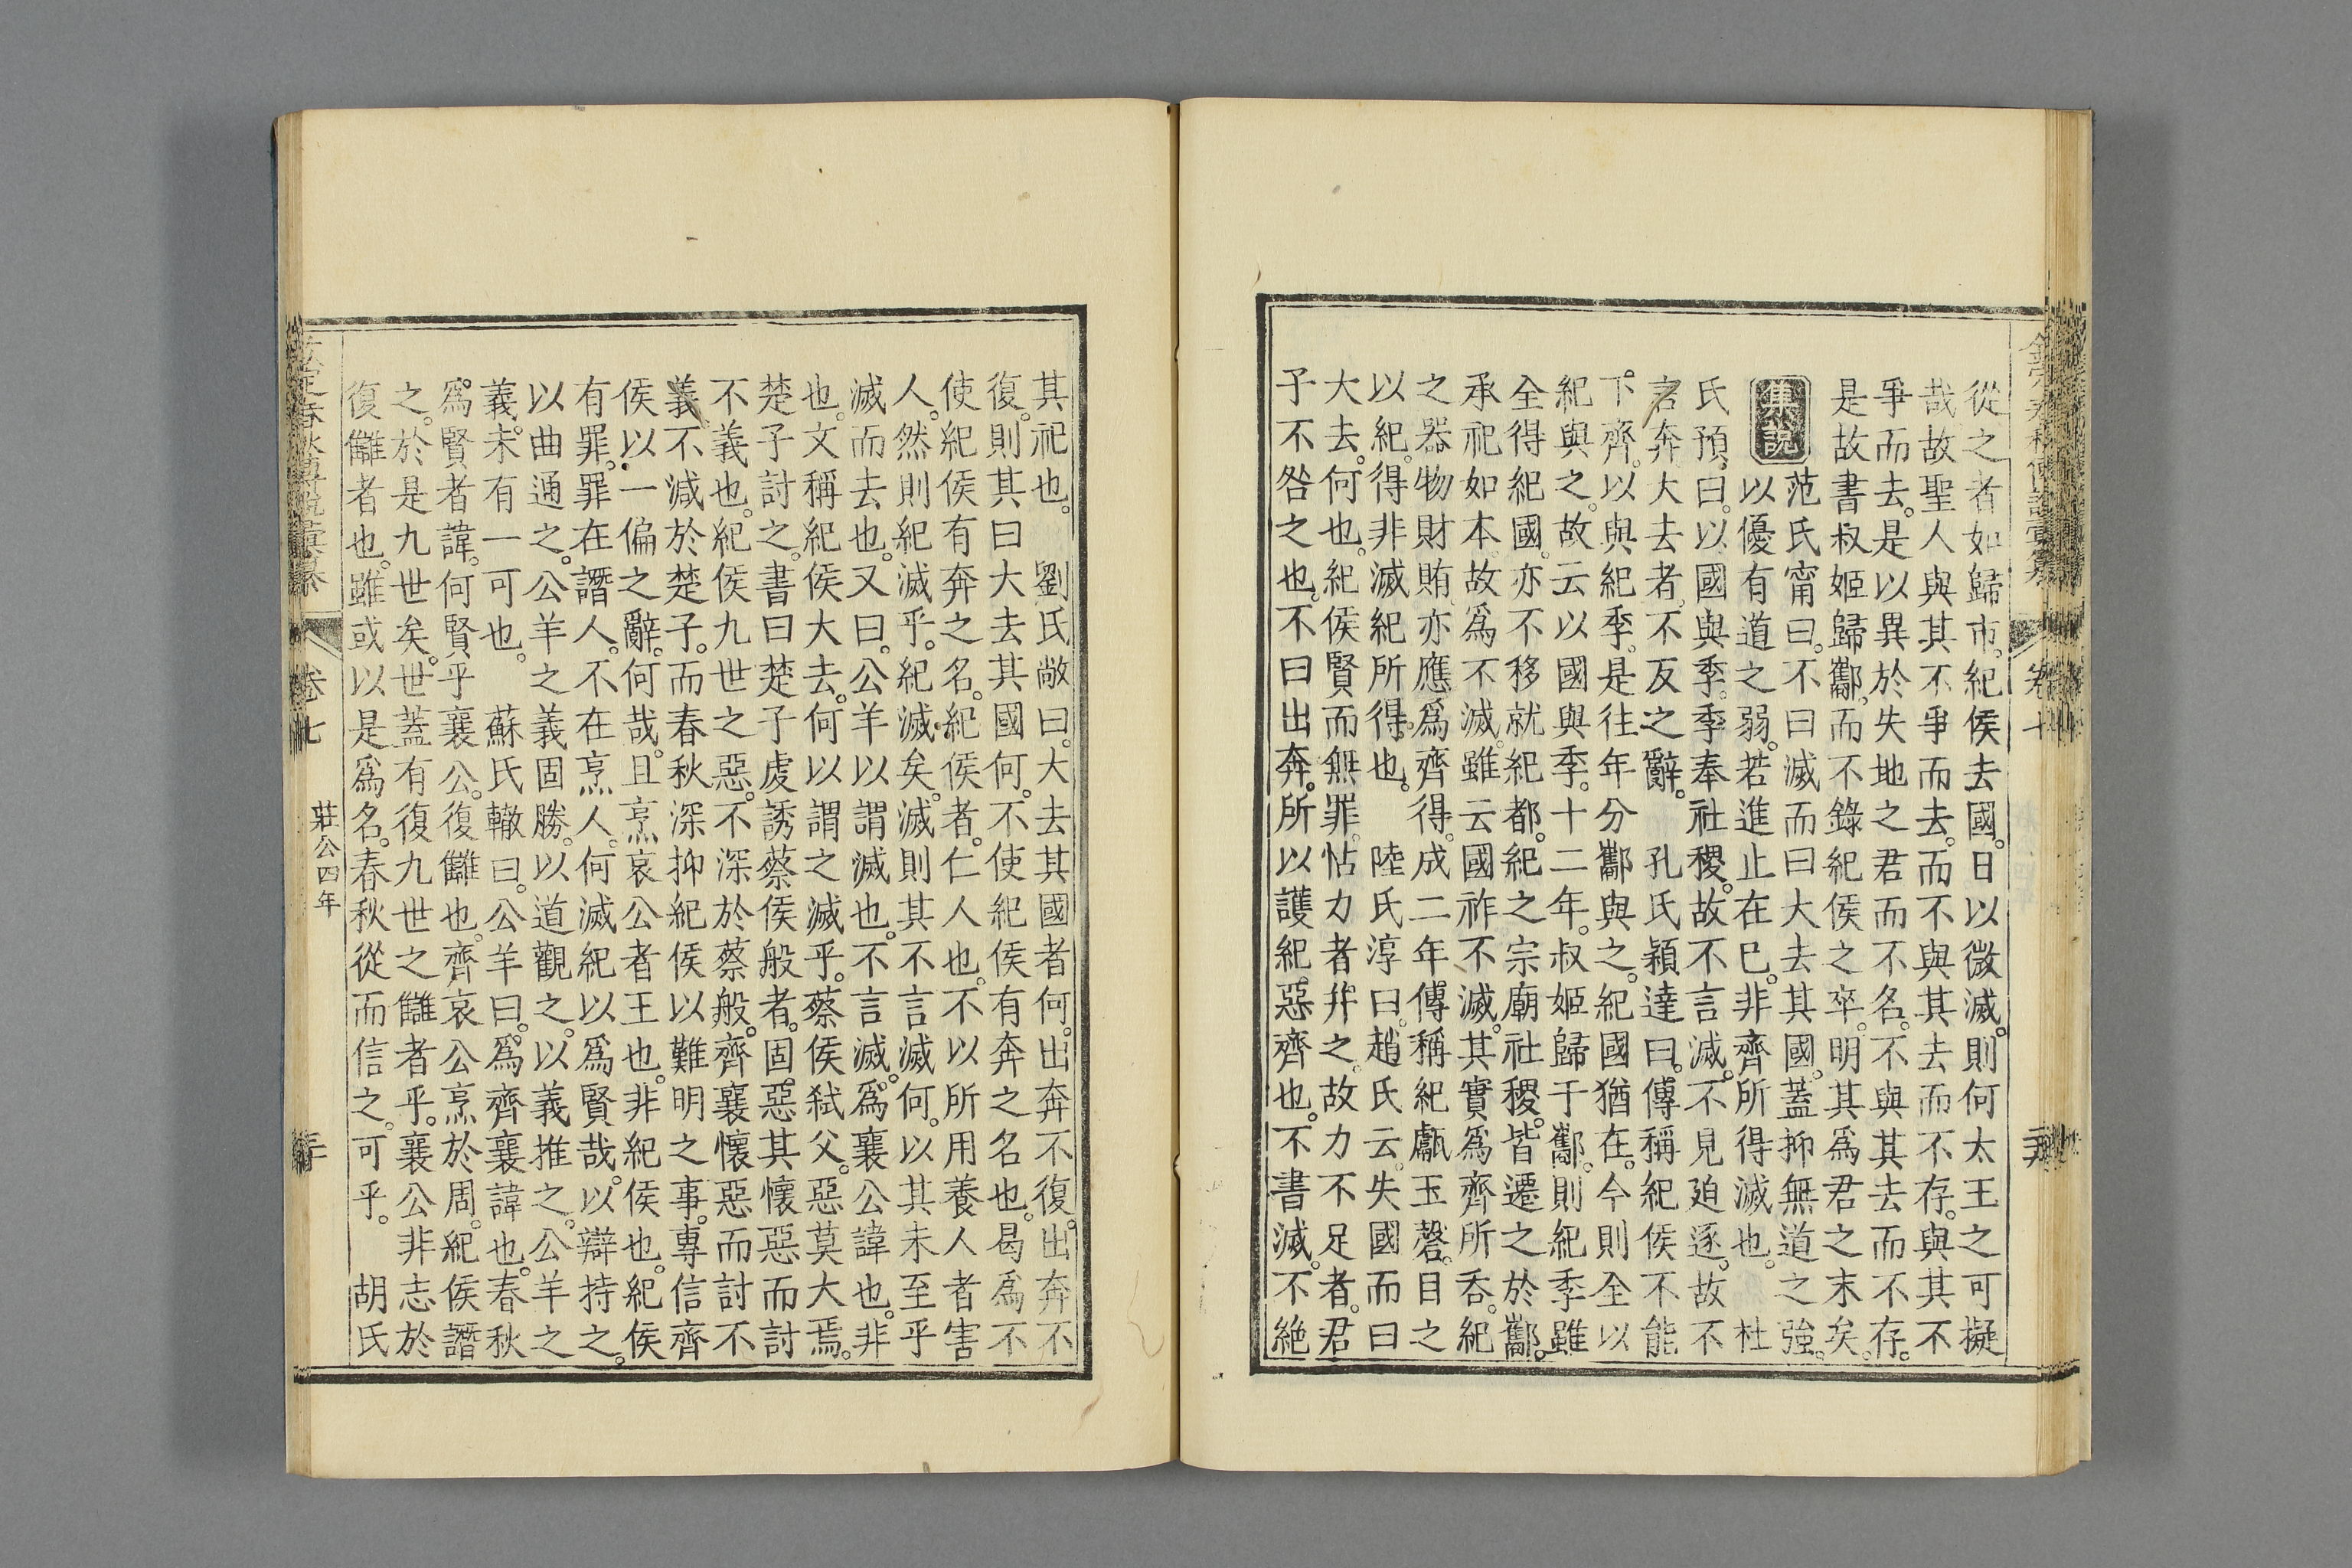 從之者如歸市。紀侯去國。日以微滅。則何太王之可擬
哉。故聖人與其不爭而去。而不與其去而不存。與其不
爭而去。是以異於失地之君而不名。不與其去而不存。
是故書叔姬歸酅。而不錄紀侯之卒。明其爲君之末矣。
集說 范氏甯曰。不曰滅而曰大去其國。蓋抑無道之強。
以優有道之弱。若進止在已。非齊所得滅也。 杜
氏預曰。以國與季。季奉社稷。故不言滅。不見迫逐。故不
言奔。大去者。不反之辭。 孔氏穎達曰。傳稱紀侯不能
下齊。以與紀季。是往年分酅與之。紀國猶在。今則全以
紀與之。故云以國與季。十二年。叔姬歸于酅。則紀季雖
全得紀國。亦不移就紀都。紀之宗廟社稷。皆遷之於酅。
承祀如本。故爲不滅。雖云國祚不滅。其實爲齊所吞。紀
之器物財賄。亦應爲齊得。成二年傳稱紀甗玉磬。目之
以紀。得非滅紀所得也。 陸氏淳曰。趙氏云。失國而曰
大去。何也。紀侯賢而無罪。怙力者。幷之。故力不足者。君
子不咎之也。不曰出奔。所以護紀。惡齊也。不書滅。不絶
其祀也。 劉氏敞曰。大去其國者何。出奔不復。出奔不
復。則其曰大去其國何。不使紀侯有奔之名也。曷爲不
使紀侯有奔之名。紀侯者。仁人也。不以所用養人者害
人。然則紀滅乎。紀滅矣。滅則其不言滅何。以其未至乎
滅而去也。又曰。公羊以謂滅也。不言滅。爲襄公諱也。非
也。文稱紀侯大去。何以謂之滅乎。蔡侯弒父。惡莫大焉。
楚子討之。書曰楚子虔誘蔡侯般者。固惡其懷惡而討
不義也。紀侯九世之惡。不深於蔡般。齊襄懷惡而討不
義。不減於楚子。而春秋深抑紀侯以難明之事。專信齊
侯以一偏之辭。何哉。且烹哀公者王也。非紀侯也。紀侯
有罪。罪在譖人。不在烹人。何滅紀以爲賢哉。以辯持之。
以曲通之。公羊之義固勝。以道觀之。以義推之。公羊之
義。未有一可也。 蘇氏轍曰。公羊曰。爲齊襄諱也。春秋
爲賢者諱。何賢乎襄公。復讎也。齊哀公烹於周。紀侯譖
之。於是九世矣。世蓋有復九世之讎者乎。襄公非志於
復讎者也。雖或以是爲名。春秋從而信之。可乎。 胡氏
卷七 莊公四年